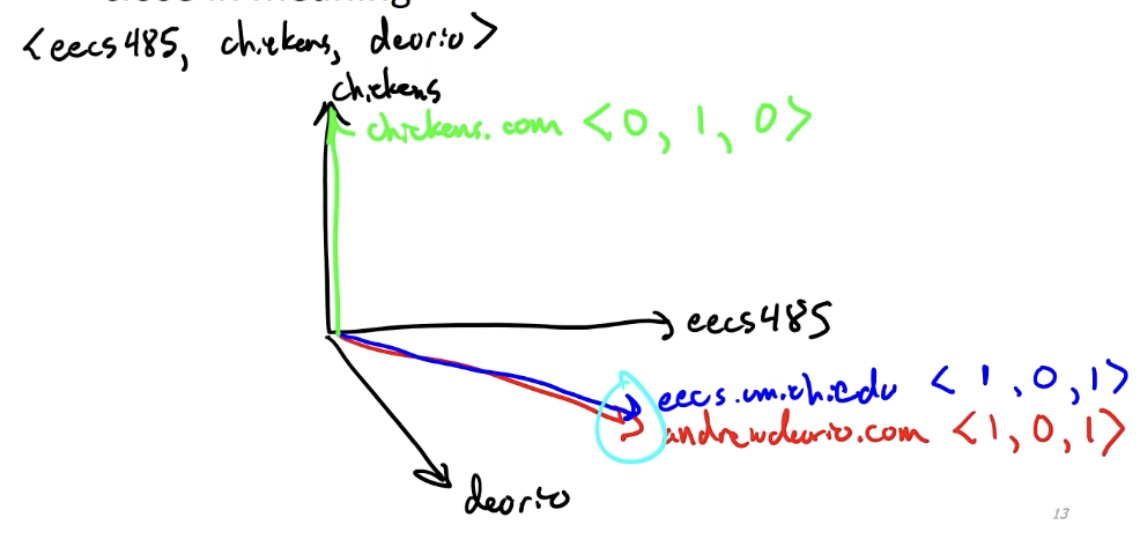 <eecs485, chickens, deorio>
chickens
chickens.com <0, 1, 0>
eecs485
eecs.umich.edu <1, 0, 1>
andrewdeorio.com <1, 0, 1>
deorio
13